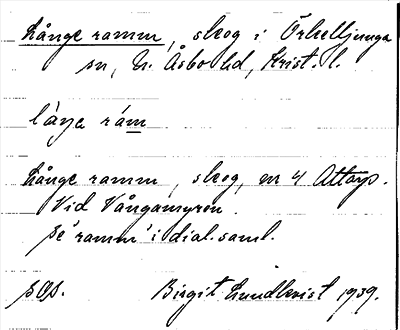 Långe ramm, skog i Örkelljunga
sn, N. Åsbo hd, Krist. l.
lån̡e rám
Långe ramm, skog, m 4 Attarp.
Vid Vångamyren.
Se "ramm" i dial. saml.
Birgit Lundkvist 1939.